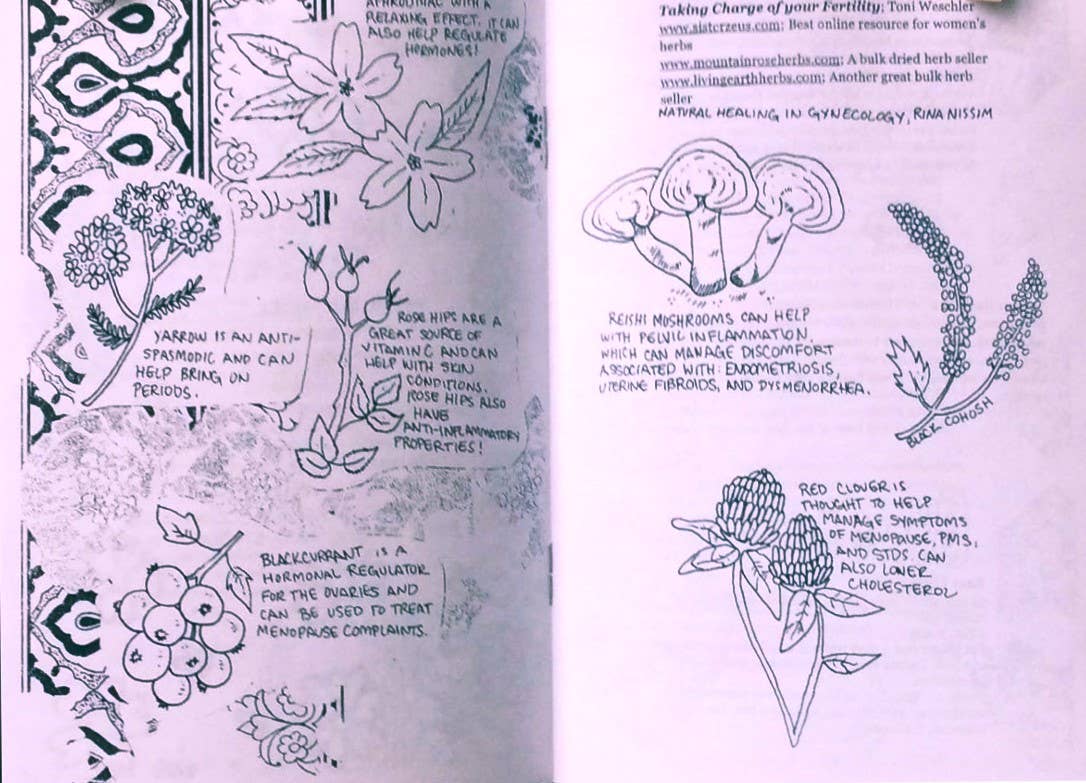 APHRODISIAC WITH A
RELAXING EFFECT. IT CAN
ALSO HELP REGULATE
HORMONES!
YARROW IS AN ANTI-
SPASMODIC AND CAN
HELP BRING ON
PERIODS.
ROSE HIPS ARE A
GREAT SOURCE OF
VITAMIN C AND CAN
HELP WITH SKIN
CONDITIONS.
ROSE HIPS ALSO
HAVE
ANTI-INFLAMMATORY
PROPERTIES!
BLACKCURRANT IS A
HORMONAL REGULATOR
FOR THE OVARIES AND
CAN BE USED TO TREAT
MENOPAUSE COMPLAINTS.
Taking Charge of your Fertility; Toni Weschler
www.sisterzeus.com; Best online resource for women's
herbs
www.mountainroseherbs.com; A bulk dried herb seller
www.livingearthherbs.com; Another great bulk herb
seller
NATURAL HEALING IN GYNECOLOGY, RINA NISSIM
REISHI MUSHROOMS CAN HELP
WITH PELVIC INFLAMMATION.
WHICH CAN MANAGE DISCOMFORT
ASSOCIATED WITH: ENDOMETRIOSIS,
UTERINE FIBROIDS, AND DYSMENORRHEA.
BLACK COHOSH
RED CLOVER IS
THOUGHT TO HELP
MANAGE SYMPTOMS
OF MENOPAUSE, PMS,
AND STDS. CAN
ALSO LOWER
CHOLESTEROL